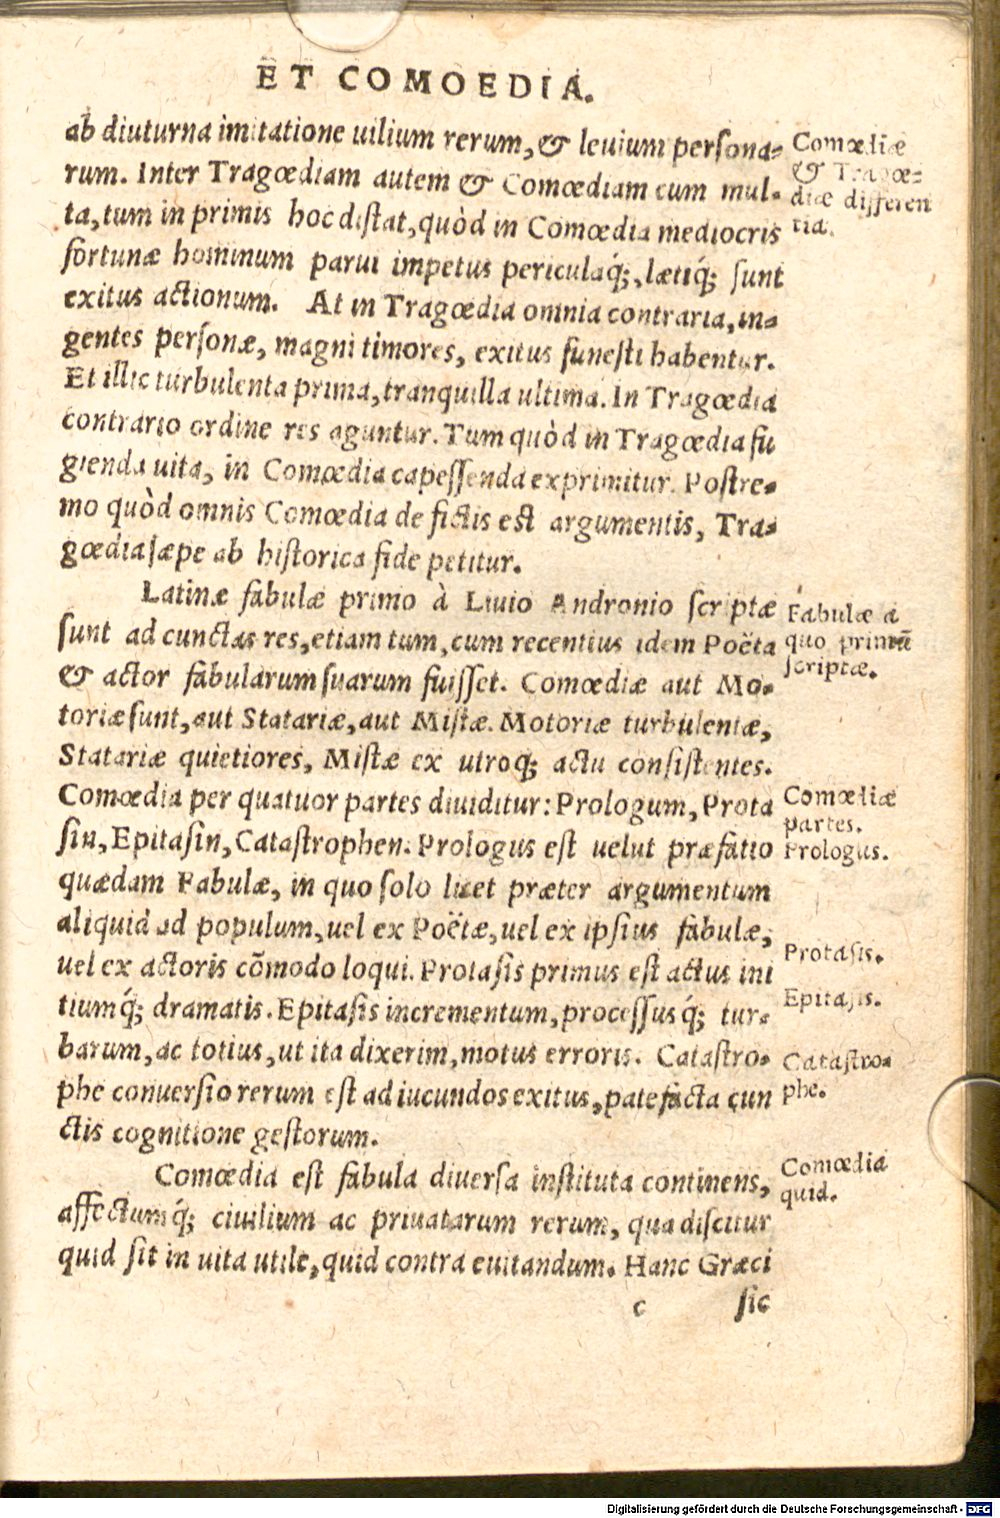 ET COMOEDIA.
ab diuturna imitatione uilium rerum, & leuium persona-
rum. Inter Tragœdiam autem & Comœdiam cum mul-
ta, tum in primis hoc distat, quòd in Comœdia mediocris
fortunæ hominum parui impetus periculaq́;, lætiq́; sunt
exitus actionum. At in Tragœdia omnia contraria, in-
gentes personæ, magni timores, exitus funesti habentur.
Et illic turbulenta prima, tranquilla ultima. In Tragœdia
contrario ordine res aguntur. Tum quòd in Tragœdia fu
gienda uita, in Comœdia capessenda exprimitur. Postre-
mo quòd omnis Comœdia de fictis est argumentis, Tra-
gœdia sæpe ab historica fide petitur.
Comœdiæ
& Tragœ-
diæ differen
tia.
Latinæ fabulæ primo à Liuio Andronio scriptæ
sunt ad cunctas res, etiam tum, cum recentius idem Poëta
& actor fabularum suarum fuisset. Comœdiæ aut Mo-
toriæ sunt, aut Statariæ, aut Mistæ. Motoriæ turbulentæ,
Statariæ quietiores, Mistæ ex utroq́; actu consistentes.
Comœdia per quatuor partes diuiditur: Prologum, Prota
sin, Epitasin, Catastrophen. Prologus est uelut præfatio
quædam Fabulæ, in quo solo licet præter argumentum
aliquid ad populum, uel ex Poëtæ, uel ex ipsius fabulæ,
uel ex actoris cõmodo loqui. Protasis primus est actus ini
tiumq́; dramatis. Epitasis incrementum, processusq́; tur-
barum, ac totius, ut ita dixerim, motus erroris. Catastro-
phe conuersio rerum est ad iucundos exitus, patefacta cun
ctis cognitione gestorum.
Fabulæ á
quo primũ
scriptæ.
Comœdiæ
partes.
Prologus.
Protasis.
Epitasis.
Catastro-
phe.
Comœdia est fabula diuersa instituta continens,
affectumq́; ciuilium ac priuatarum rerum, qua discitur
quid sit in uita utile, quid contra euitandum. Hanc Græci
Comœdia
quid.
c sic
Digitalisierung gefördert durch die Deutsche Forschungsgemeinschaft - DFG